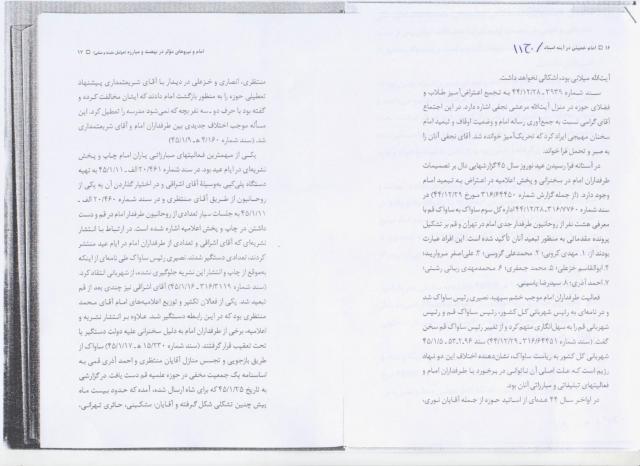 ۱۶ □ امام خمینی در آینه اسناد /
آیت‌الله میلانی بود، اشکالی نخواهد داشت.
سند شماره ۳۹۳۹ـ ۴۴/۱۲/۲۸ به تجمع اعتراض‌آمیز طلاب و
فضلای حوزه در منزل آیت‌الله مرعشی نجفی اشاره دارد. در این اجتماع
آقای گرامی نسبت به جمع‌آوری رساله امام و وضعیت اوقاف و تبعید امام
سخنان مهیجی ایراد کرد که تحریک‌آمیز خوانده شد. آقای نجفی آنان را
به صبر و تحمل فرا خواند.
در آستانه فرا رسیدن عید نوروز سال ۴۵ گزارشهایی دال بر تصمیمات
طرفداران امام در سخنرانی و پخش اعلامیه در اعتراض به تبعید امام
وجود دارد. (از جمله گزارش شماره ۳۱۶/۶۴۴۵۰ مورخ ۴۴/۱۲/۲۹) در
سند شماره ۳۱۶/۷۷۶۰ـ۴۴/۱۲/۲۸ اداره کل سوم ساواک به ساواک قم با
معرفی هشت نفر از روحانیون طرفدار جدی امام در تهران و قم بر تشکیل
پرونده مقدماتی به منظور تبعید آنان تأکید شده است. این افراد عبارت
بودند از: ۱. مهدی کروبی؛ ۲. محمدعلی گرامی؛ ۳. علی‌اصغر مروارید؛
۴. ابوالقاسم خزعلی؛ ۵. محمد جعفری؛ ۶. محمدمهدی ربانی رشتی؛
۷. احمد آذری؛ ۸. سیدرضا یاسینی.
فعالیت طرفداران امام موجب خشم سپهبد نصیری رئیس ساواک شد
و در نامه‌ای به رئیس شهربانی کل کشور، رئیس ساواک قم و رئیس
شهربانی قم را به سهل‌انگاری متهم کرد و از تغییر رئیس ساواک قم سخن
گفت. (سند شماره ۳۱۶/۶۴۴۵۱ـ ۴۴/۱۲/۲۹) سند ۵۳ـ۲ـ۹۶ـ ۴۵/۱/۵
شهربانی کل کشور به ریاست ساواک، نشان‌دهنده اختلاف این دو نهاد
رژیم است که علت اصلی آن ناتوانی در برخورد با طرفداران امام و
فعالیتهای تبلیغاتی و مبارزاتی آنان بود.
در اواخر سال ۴۴ عده‌ای از اساتید حوزه از جمله آقایان نوری،
امام و نیروهای مؤثر در نهضت و مبارزه □ ۱۷
منتظری، انصاری و خزعلی در دیدار با آقای شریعتمداری پیشنهاد
تعطیلی حوزه را به منظور بازگشت امام دادند که ایشان مخالفت کرده و
گفته بود با حرف دو ـ سه نفر بچه که نمی‌شود مدرسه را تعطیل کرد. این
مسأله موجب اختلاف جدیدی بین طرفداران امام و آقای شریعتمداری
شد. (سند شماره ۴/۱۶۰ هـ ـ ۴۵/۱/۹)
یکی از مهمترین فعالیتهای مبارزاتی یاران امام چاپ و پخش
نشریه‌ای در ایام عید بود. در سند شماره ۲۰/۴۶۱ الف ـ ۴۵/۱/۱۱ به تهیه
دستگاه پلی‌کپی به‌وسیلهٔ آقای اشراقی و در اختیار گذاردن آن به یکی از
روحانیون از طریق آقای منتظری و در سند شماره ۲۰/۴۶۰ الف ـ
۴۵/۱/۱۱ به جلسات سیار تعدادی از روحانیون طرفدار امام در قم و دست
داشتن در چاپ و پخش اعلامیه اشاره شده است. در ارتباط با انتشار
نشریه‌ای که آقای اشراقی و تعدادی از طرفداران امام در ایام عید منتشر
کردند، تعدادی دستگیر شدند. نصیری رئیس ساواک طی نامه‌ای از اینکه
به‌موقع از چاپ و انتشار این نشریه جلوگیری نشده، از شهربانی انتقاد کرد.
(سند شماره ۳۱۶/۳۱۱۹ـ ۴۵/۱/۱۶) آقای اشراقی نیز چندی بعد از قم
تبعید شد. یکی از فعالان تکثیر و توزیع اعلامیه‌های امام آقای محمد
منتظری بود که در این رابطه دستگیر شد. علاوه بر انتشار نشریه و
اعلامیه، برخی از طرفداران امام به دلیل سخنرانی علیه دولت دستگیر یا
تحت تعقیب قرار گرفتند. (سند شماره ۱۵/۲۳۰ هـ ـ ۴۵/۱/۱۷) ساواک از
طریق بازجویی و تجسس منازل آقایان منتظری و احمد آذری قمی به
اساسنامه یک جمعیت مخفی در حوزه علمیه قم دست یافت. در گزارشی
به تاریخ ۴۵/۱/۲۵ که برای شاه ارسال شده، آمده که حدود بیست ماه
پیش چنین تشکلی شکل گرفته و آقایان: مشکینی، حائری تهرانی،